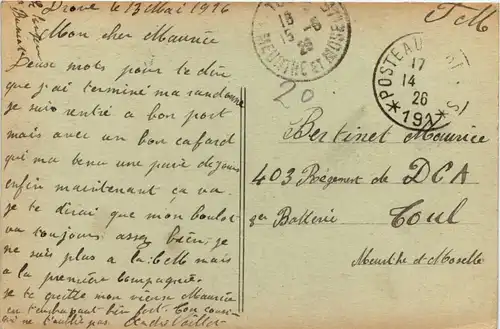 Drove le 13 Mai 1926
Mon cher Maurice
Deux mots pour te dire
que j'ai terminé ma randonnée
je suis rentré a bon port
mais avec un bon cafard
qui ma tenu une paire de jours
enfin maintenant ça va
je te dirai que mon boulot
va toujours assez bien, je
ne suis plus a la mais
a la première compagnie.
je te quitte mon vieux Maurice
en bien fort. Ton cousin
qui ne t'oublie pas.
F M
MEURTHE ET MOSELLE
POSTE AUX ARMEES
17
14
26
*191*
20
Bertinet Maurice
403 Régiment de DCA
Batterie Toul
Meurthe et Moselle